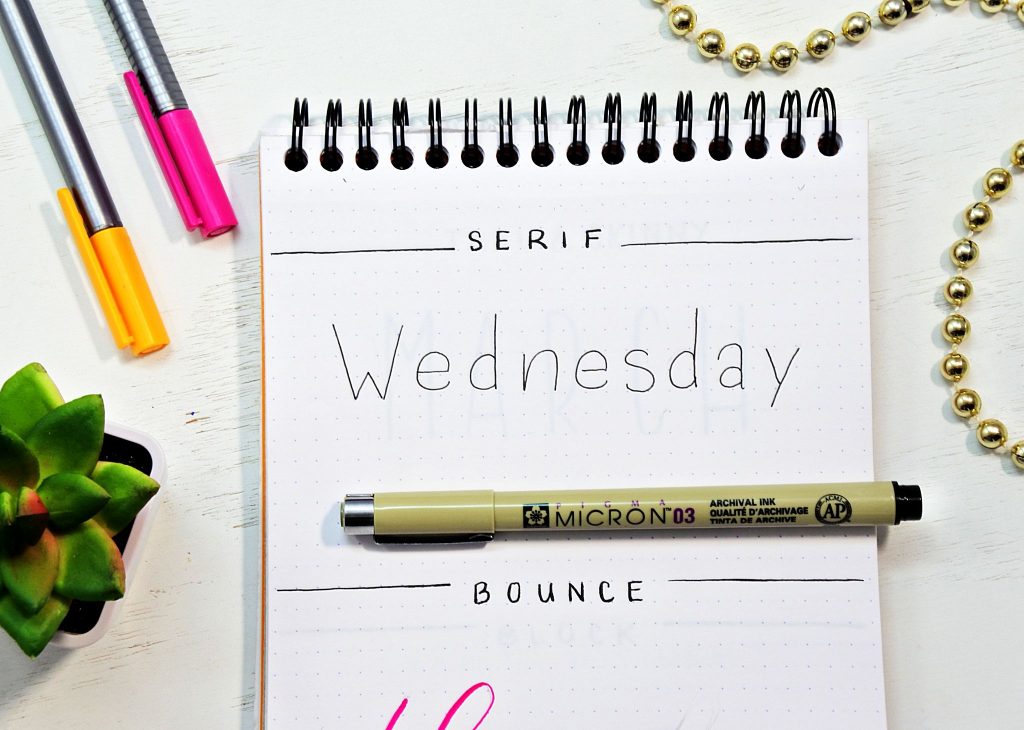 SERIF
Wednesday
PIGMA
MICRON™ 03
ARCHIVAL INK
QUALITÉ D'ARCHIVAGE
TINTA DE ARCHIVE
ACMI
AP
BOUNCE
BLOCK
MARCH